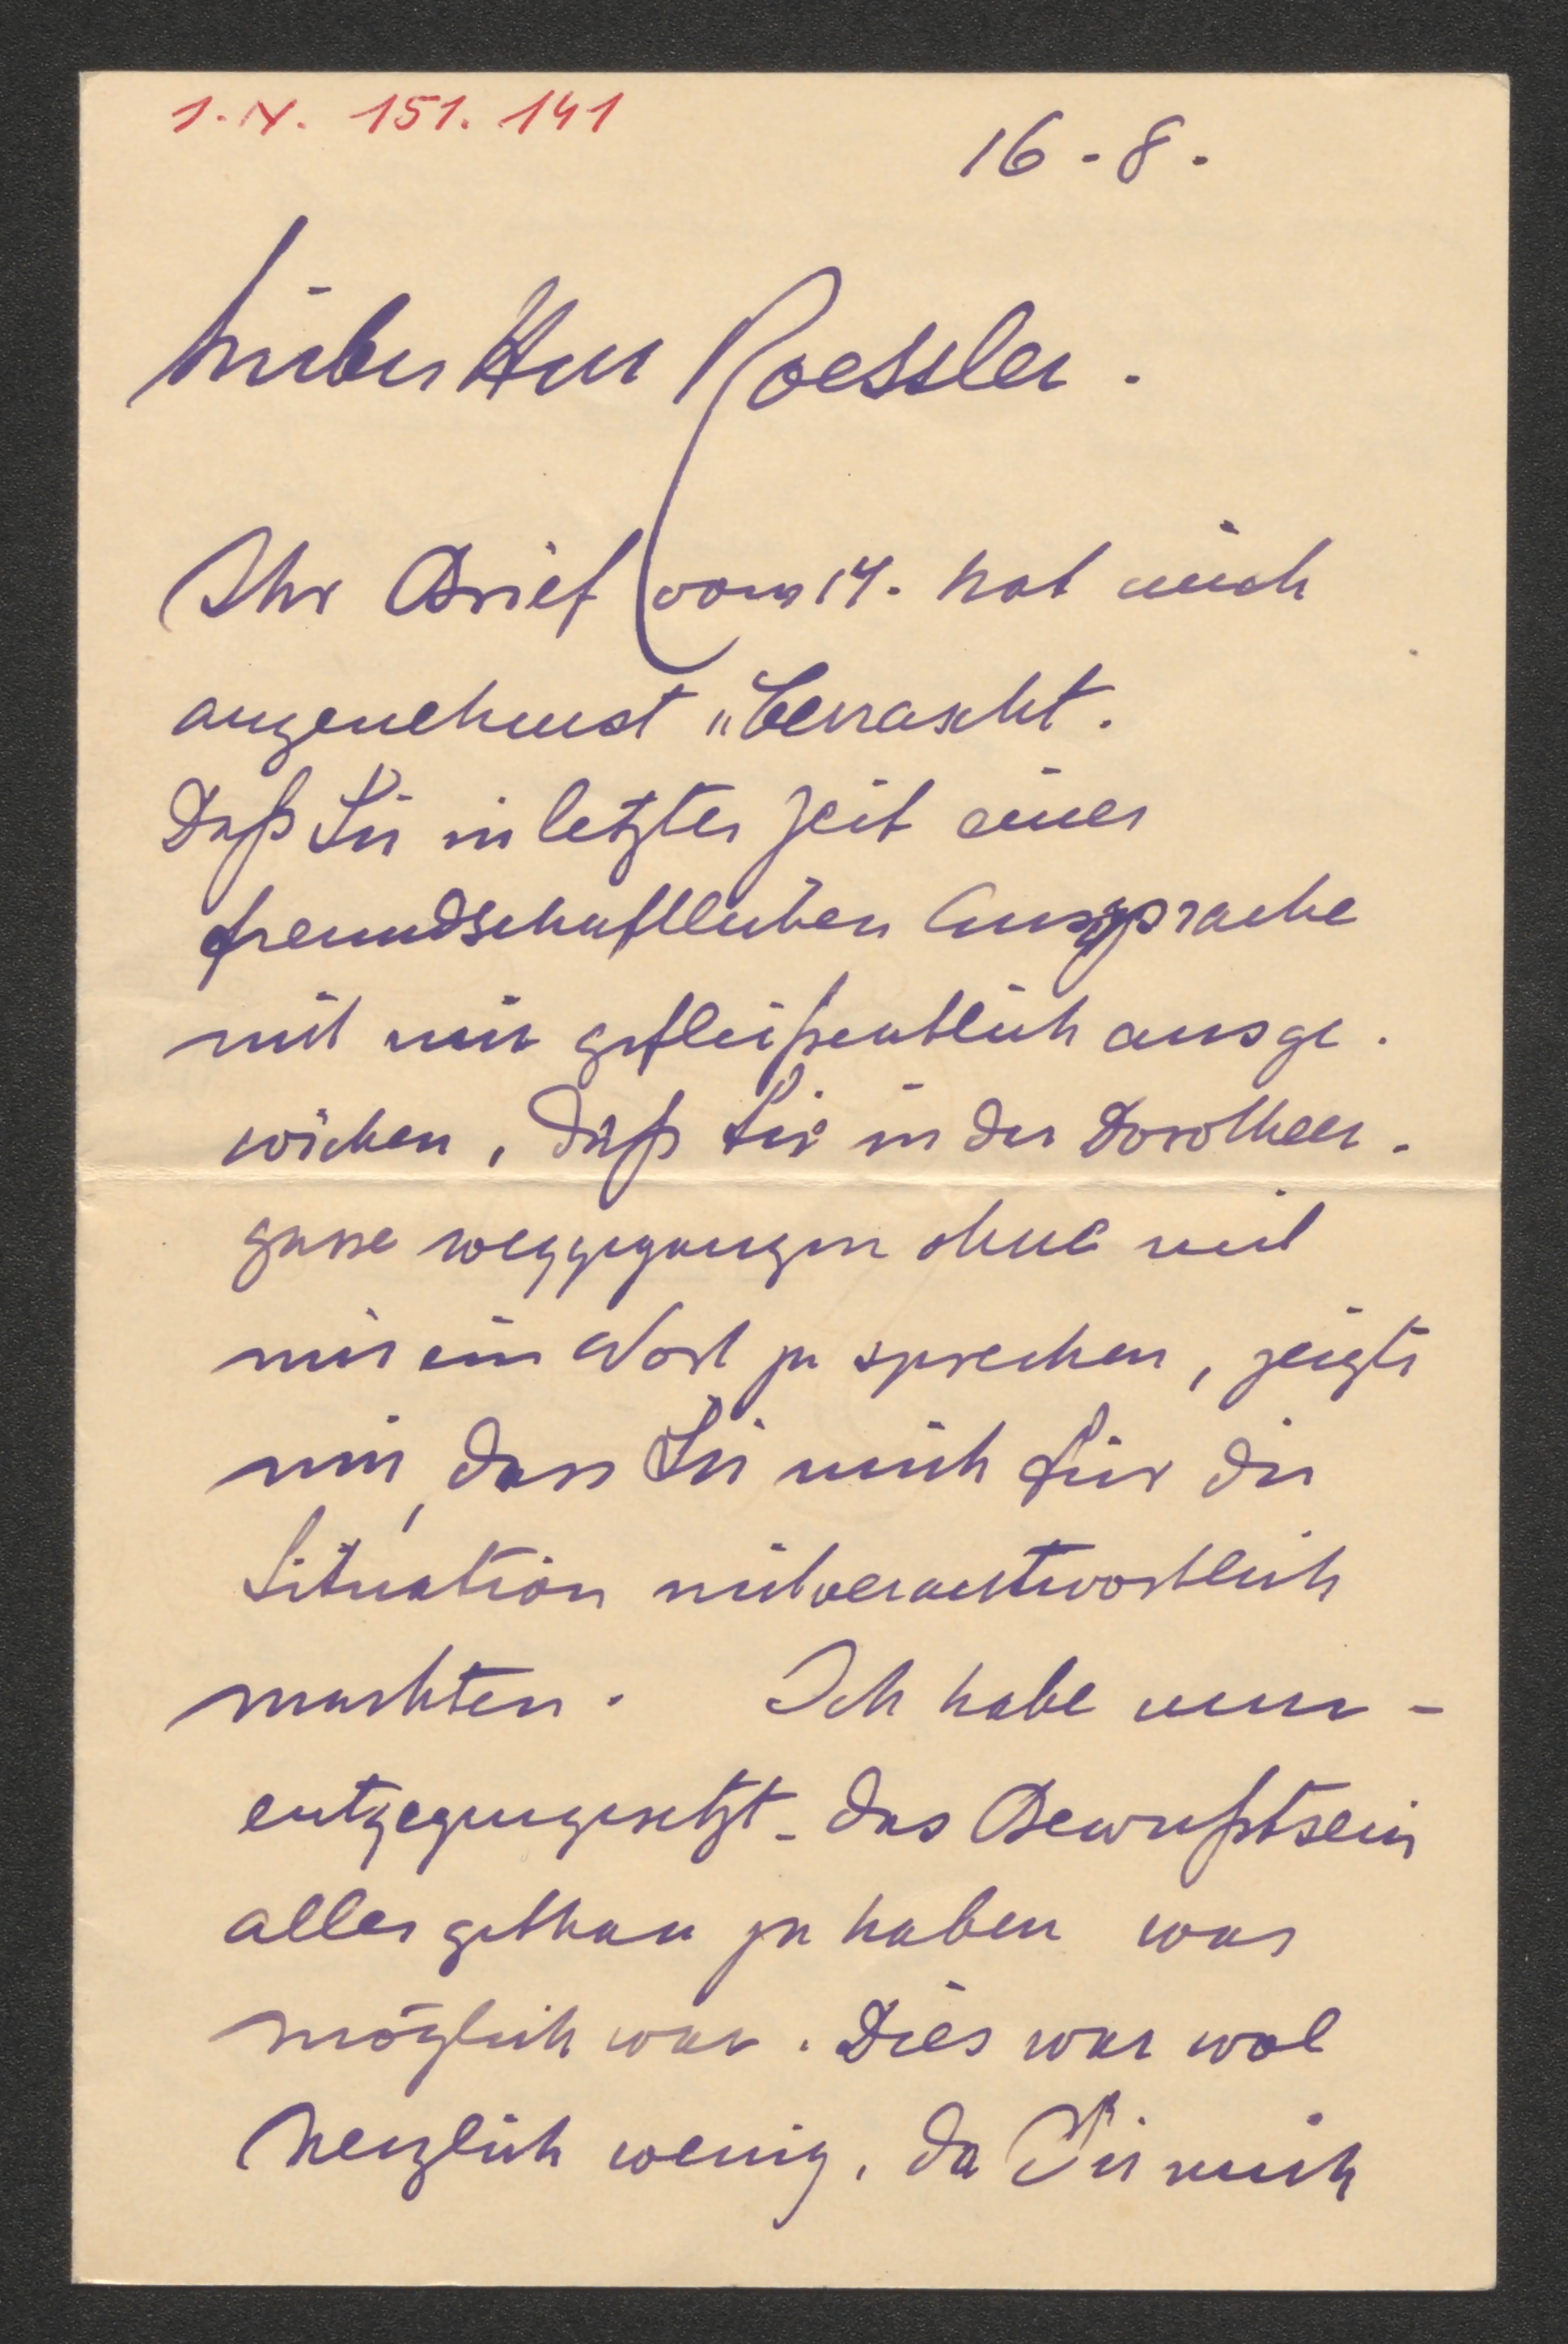 I.N. 151.141
16-8.
Lieber Herr Roessler.
Ihr Brief vom 14. hat mich
angenehmst überrascht.
Daß Sie in letzter Zeit einer
freundschaftlichen Aussprache
mit mir geflißentlich ausge-
wichen, daß Sie in der Dorotheer-
gasse weggegangen ohne mit
mir ein Wort zu sprechen, zeigte
mir, dass Sie mich für die
Situation mitverantwortlich
machten. Ich habe nun -
entgegengesetzt - das Bewußtsein
alles gethan zu haben was
möglich war. Dies war wol
herzlich wenig, da Sie mich